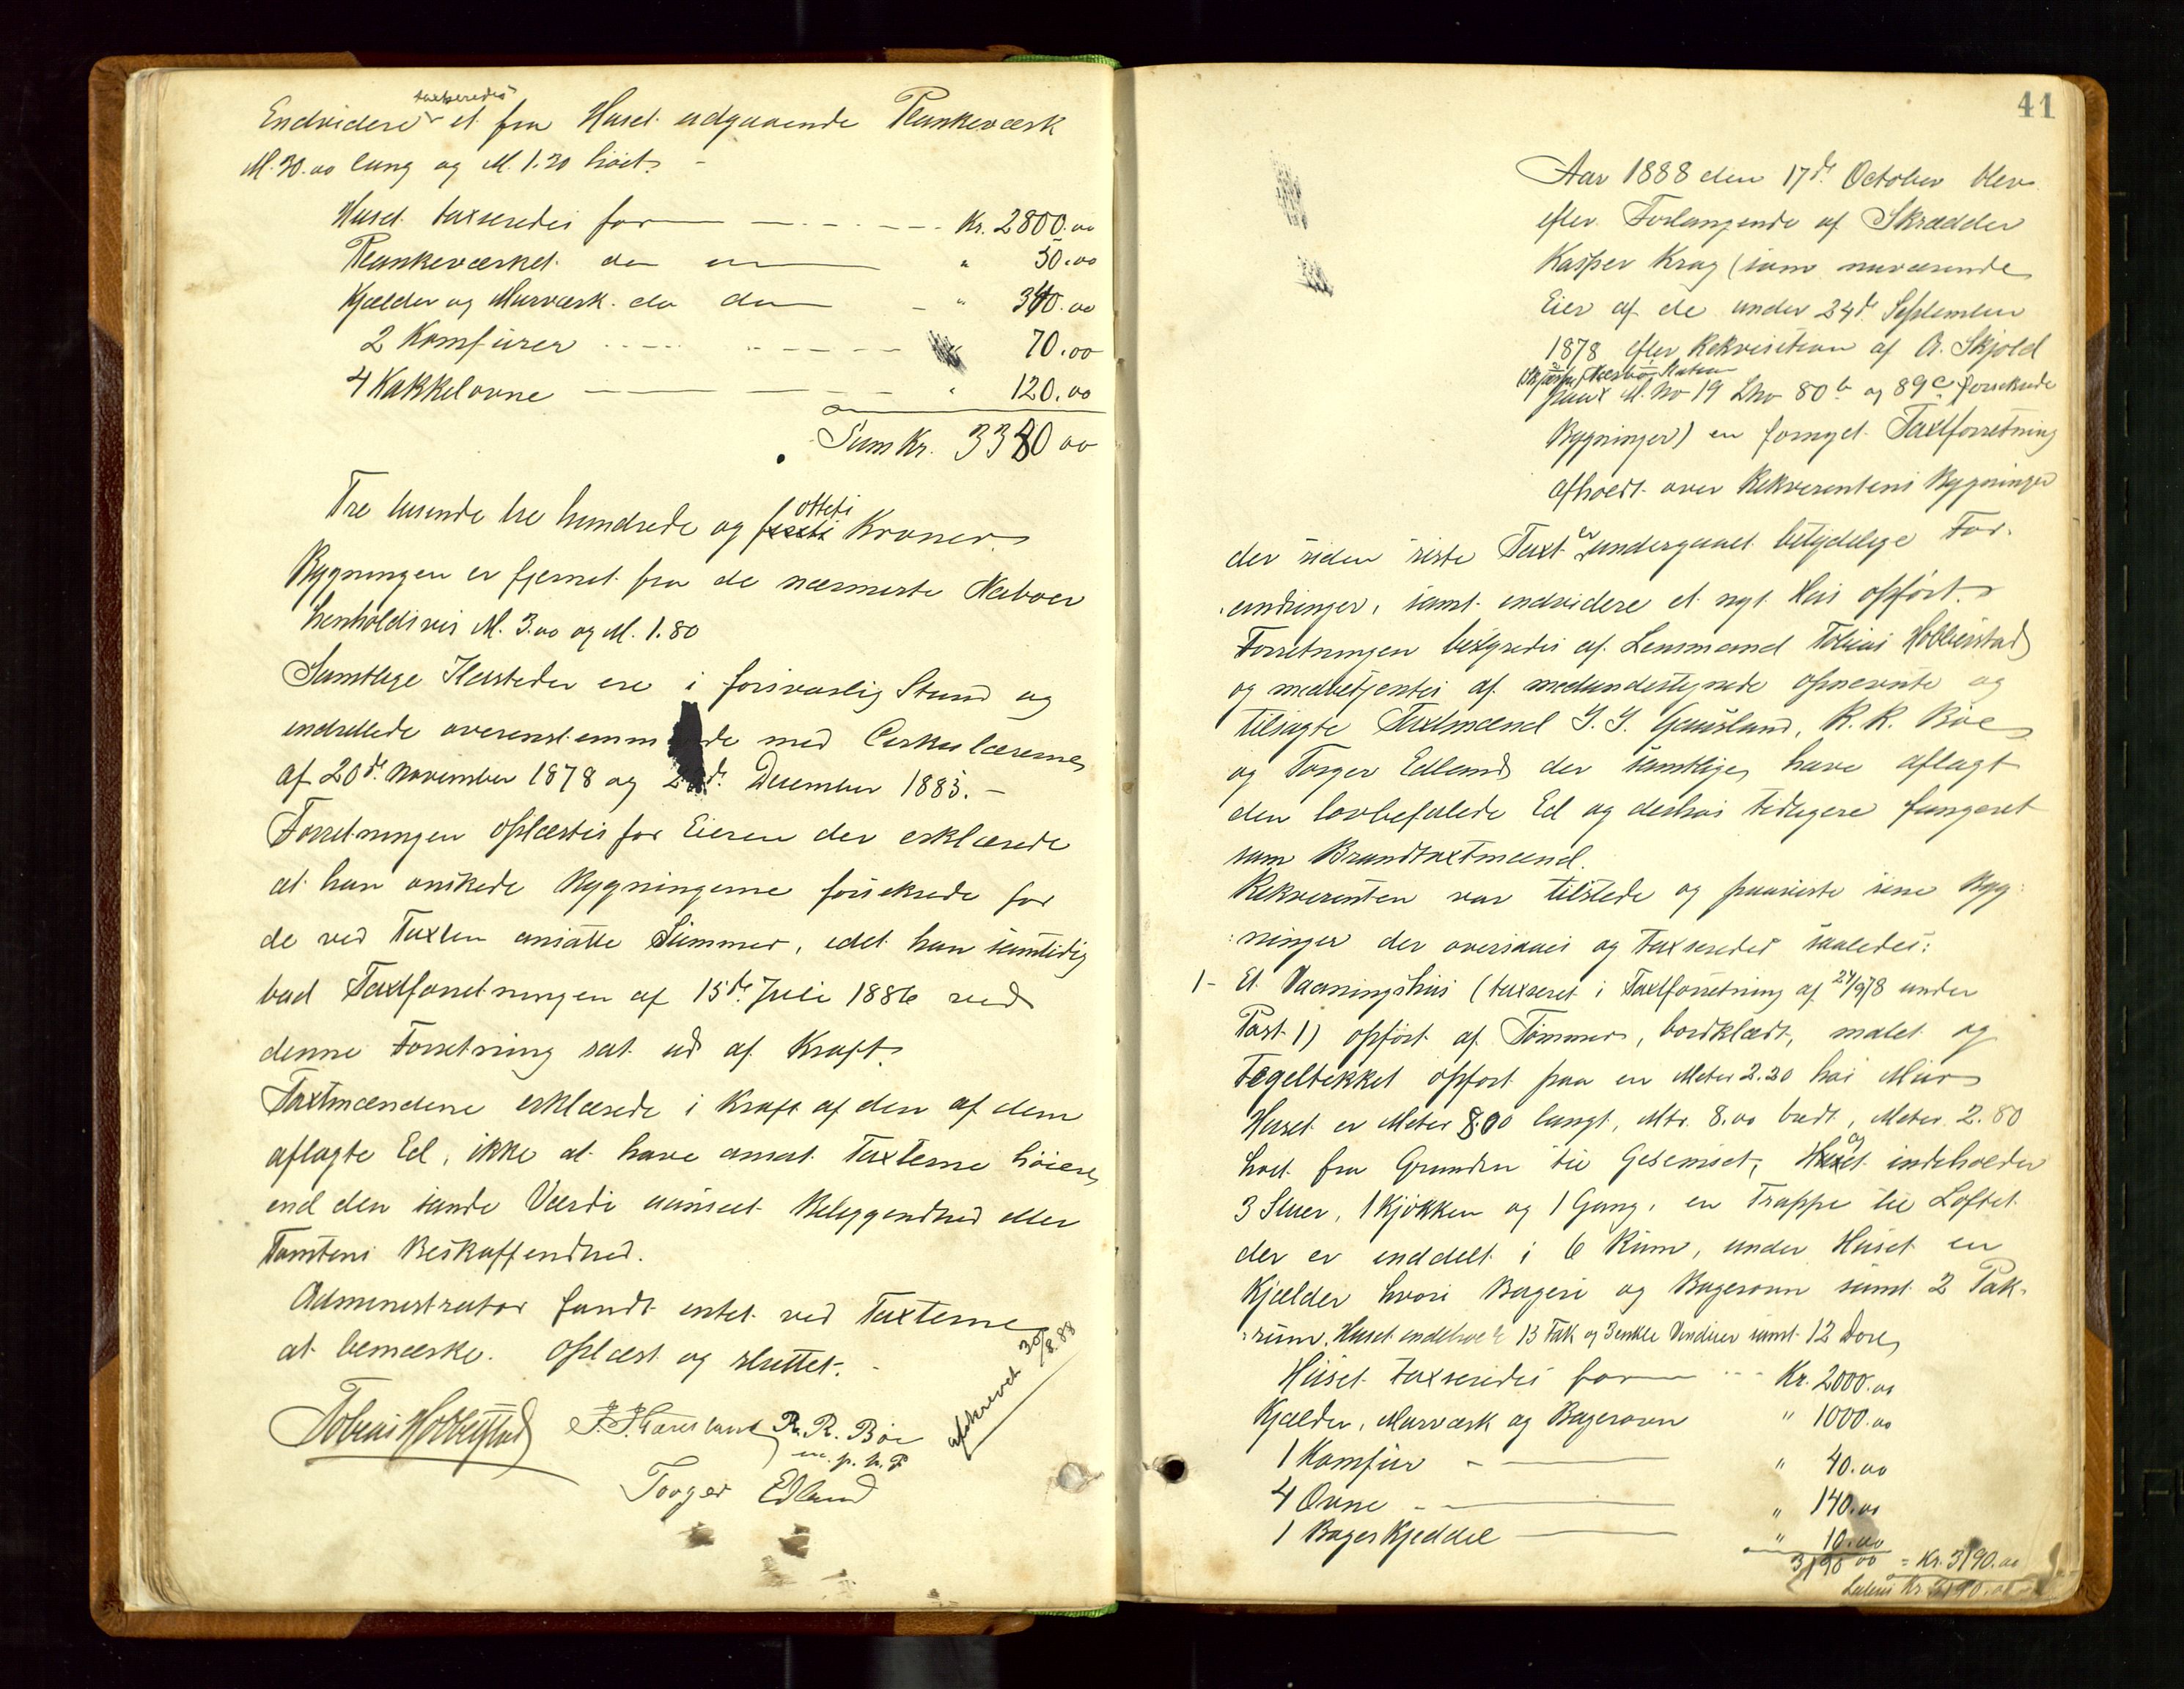 Endvidere taxseredes et fra Huset udgaaende Plankeværk
M. 30.00 lang og M. 1.20 höit. -
Huset taxseredes for Kr. 2800.00
Plankeværket do " 50.00
Kjælder og Murværk do do " 340.00
2 Komfürer " 70.00
4 Kakkelovne " 120.00
Sum Kr. 3380 00
Tre tusende tre hundrede og otteti Kroner
Bygningen er fjernet fra de nærmeste Naboer
henholdsvis M. 3.00 og M. 1.80
Samtlige Ildsteder ere i forsvarlig Stand og
indrettede overenstemmende med Cirkulærerne
af 20de November 1878 og de December 1885. -
Forretningen oplæstes for Eieren der erklærede
at han önskede Bygningerne forsikrede for
de ved Taxten ansatte Summer, idet han samtidig
bad Taxtforretningen af 15de Juli 1886 ved
denne Forretning sat ud af Kraft.
Taxtmændene erklærede i Kraft af den af dem
aflagte Ed, ikke at have ansat Taxterne höiere
end den sande Værdi uanseet Beliggendhed eller
Tomtens Beskaffendhed.
Administrator fandt intet ved Taxterne
at bemærke. Oplæst og sluttet. -
afskrevet 30/8.88
Tobias Hobberstad J. J. Gausland R. R. Böe
m. p. P.
Torger Edland
41
Aar 1888 den 17de October blev
efter Forlangende af Skrædder
Kasper Krag (som nuværende
Eier af de under 24de September
1878 efter Rekvisition af A. Skjold
Station
paa M. No 19 Lno 80b og 89c forsikrede
Bygninger) en fornyet Taxtforretning
afholdt over Rekverentens Bygninger
der siden siste Taxt er undergaaet betydelige For-
andringer, samt endvidere et nyt Hus opfört.
Forretningen bestyredes af Lensmand Tobias Hobberstad
og medbetjentes af medundertegnede opnevnte og
tilsagte Taxtmænd J. J. Gausland, R. R. Böe
og Torger Edland der samtlige have aflagt
den lovbefalede Ed og deshos tidligere fungeret
som Brandtaxtmænd.
Rekverenten var tilstede og paaviste sine Byg-
ninger der oversaaes og taxseredes saaledes:
1- Et Vaaningshus (taxseret i Taxtforretning af 24/9 78 under
Post 1) opfört af Tömmer, bordklædt, malet og
Tegeltekket opfört paa en Meter 2.20 höi Mur
Huset er Meter 8.00 langt, Mtr. 8.00 bredt, Meter 2.80
höit fra Grunden til Gesemset, og indeholder
3 Stuer, 1 Kjökken og 1 Gang, en Trappe til Loftet
der er inddelt i 6 Rum, under Huset en
Kjælder hvori Bageri og Bagerovn samt 2 Pak-
rum. Huset indeholder 13 Fak og 3 enkle Vinduer samt 12 Döre
Huset taxseredes for Kr. 2000.00
Kjælder, Murværk og Bagerovn " 1000.00
1 Komfür " 40.00
4 Ovne " 140.00
1 BagerKjeddel " 10.00
3190 00 = Kr. 3190.00
Lateris Kr. 3190.00